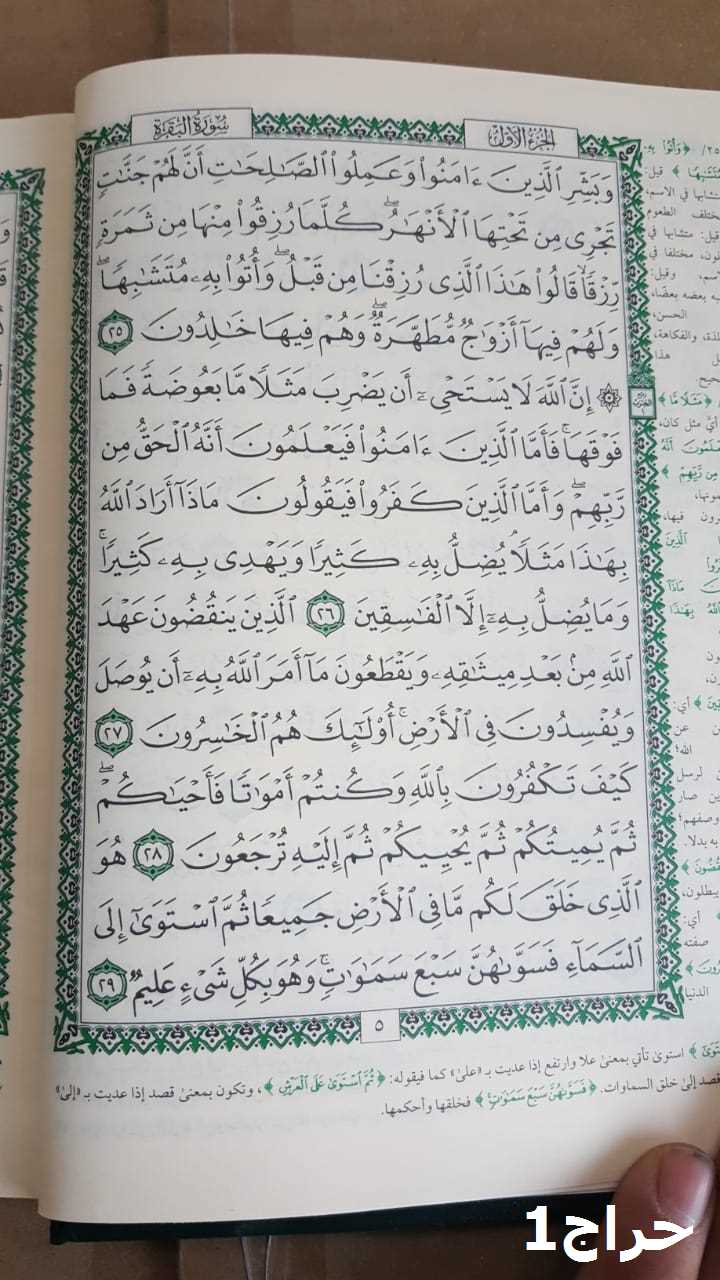 الجزء الأول
سورة البقرة
وَبَشِّرِ ٱلَّذِينَ ءَامَنُوا۟ وَعَمِلُوا۟ ٱلصَّـٰلِحَـٰتِ أَنَّ لَهُمْ جَنَّـٰتٍ
تَجْرِى مِن تَحْتِهَا ٱلْأَنْهَـٰرُ ۖ كُلَّمَا رُزِقُوا۟ مِنْهَا مِن ثَمَرَةٍ
رِّزْقًا ۙ قَالُوا۟ هَـٰذَا ٱلَّذِى رُزِقْنَا مِن قَبْلُ ۖ وَأُتُوا۟ بِهِۦ مُتَشَـٰبِهًا ۖ
وَلَهُمْ فِيهَآ أَزْوَٰجٌ مُّطَهَّرَةٌ ۖ وَهُمْ فِيهَا خَـٰلِدُونَ ٢٥
۞ إِنَّ ٱللَّهَ لَا يَسْتَحْىِۦٓ أَن يَضْرِبَ مَثَلًا مَّا بَعُوضَةً فَمَا
فَوْقَهَا ۚ فَأَمَّا ٱلَّذِينَ ءَامَنُوا۟ فَيَعْلَمُونَ أَنَّهُ ٱلْحَقُّ مِن
رَّبِّهِمْ ۖ وَأَمَّا ٱلَّذِينَ كَفَرُوا۟ فَيَقُولُونَ مَاذَآ أَرَادَ ٱللَّهُ
بِهَـٰذَا مَثَلًا ۘ يُضِلُّ بِهِۦ كَثِيرًا وَيَهْدِى بِهِۦ كَثِيرًا ۚ
وَمَا يُضِلُّ بِهِۦٓ إِلَّا ٱلْفَـٰسِقِينَ ٢٦ ٱلَّذِينَ يَنقُضُونَ عَهْدَ
ٱللَّهِ مِنۢ بَعْدِ مِيثَـٰقِهِۦ وَيَقْطَعُونَ مَآ أَمَرَ ٱللَّهُ بِهِۦٓ أَن يُوصَلَ
وَيُفْسِدُونَ فِى ٱلْأَرْضِ ۚ أُو۟لَـٰٓئِكَ هُمُ ٱلْخَـٰسِرُونَ ٢٧
كَيْفَ تَكْفُرُونَ بِٱللَّهِ وَكُنتُمْ أَمْوَٰتًا فَأَحْيَـٰكُمْ ۖ
ثُمَّ يُمِيتُكُمْ ثُمَّ يُحْيِيكُمْ ثُمَّ إِلَيْهِ تُرْجَعُونَ ٢٨ هُوَ
ٱلَّذِى خَلَقَ لَكُم مَّا فِى ٱلْأَرْضِ جَمِيعًا ثُمَّ ٱسْتَوَىٰٓ إِلَى
ٱلسَّمَآءِ فَسَوَّىٰهُنَّ سَبْعَ سَمَـٰوَٰتٍ ۚ وَهُوَ بِكُلِّ شَىْءٍ عَلِيمٌ ٢٩
٥
استوىٰ تأتي بمعنىٰ علا وارتفع إذا عديت بـ «علىٰ» كما في قوله: ﴿ثُمَّ ٱسْتَوَىٰ عَلَى ٱلْعَرْشِ﴾، وتكون بمعنىٰ قصد إذا عديت بـ «إلىٰ»
قصد إلىٰ خلق السماوات. ﴿فَسَوَّىٰهُنَّ سَبْعَ سَمَـٰوَٰتٍ﴾ فخلقها وأحكمها.
حراج1